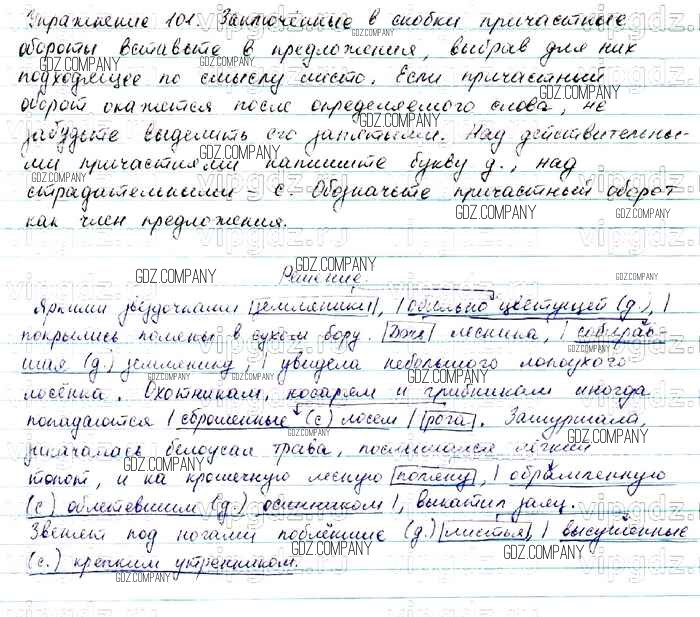 Упражнение 101. Заключённые в скобки причастные
обороты вставьте в предложения, выбрав для них
подходящее по смыслу место. Если причастный
оборот окажется после определяемого слова, не
забудьте выделить его запятыми. Над действительны-
ми причастиями напишите букву д., над
страдательными - с. Обозначьте причастный оборот
как член предложения.
GDZ.COMPANY
Решение.
Яркими звёздочками |земляники|, |обильно цветущей (д.),|
покрылись поляны в сухом бору. |Дочь| лесника, |собирав-
шая (д.) землянику,| увидела небольшого лопоухого
лосёнка. Охотникам, косарям и грибникам иногда
попадаются |сброшенные (с) лосем| |рога|. Зашуршала,
закачалась белоусая трава, послышался лёгкий
топот, и на крошечную лесную |поляну|, |обрамленную
(с) облетевшим (д.) осинником|, выкатил заяц.
Звенят под ногами поблёкшие (д.) |листья|, |высушенные
(с.) крепким утренником.